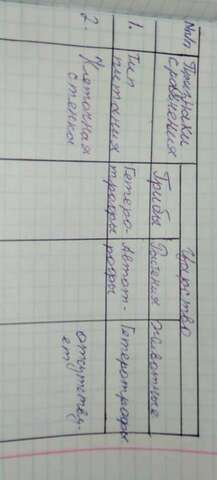 №п/п Признаки сравнения Царство
Грибы Растения Животные
1. Тип питания Гетеро- Автот- Гетеротрофы
трофы рофы
2. Клеточная отсутству-
стенка ет